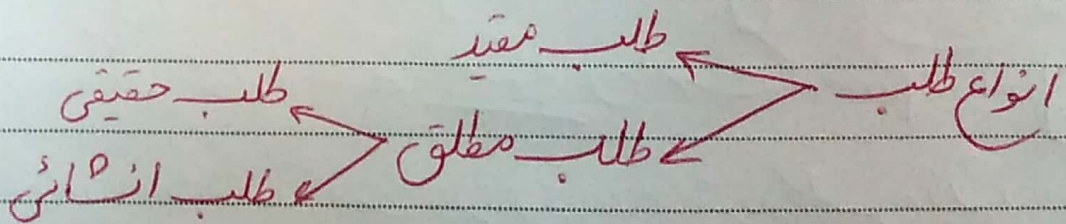 انواع طلب
طلب مقید
طلب مطلق
طلب حقیقی
طلب انشائی